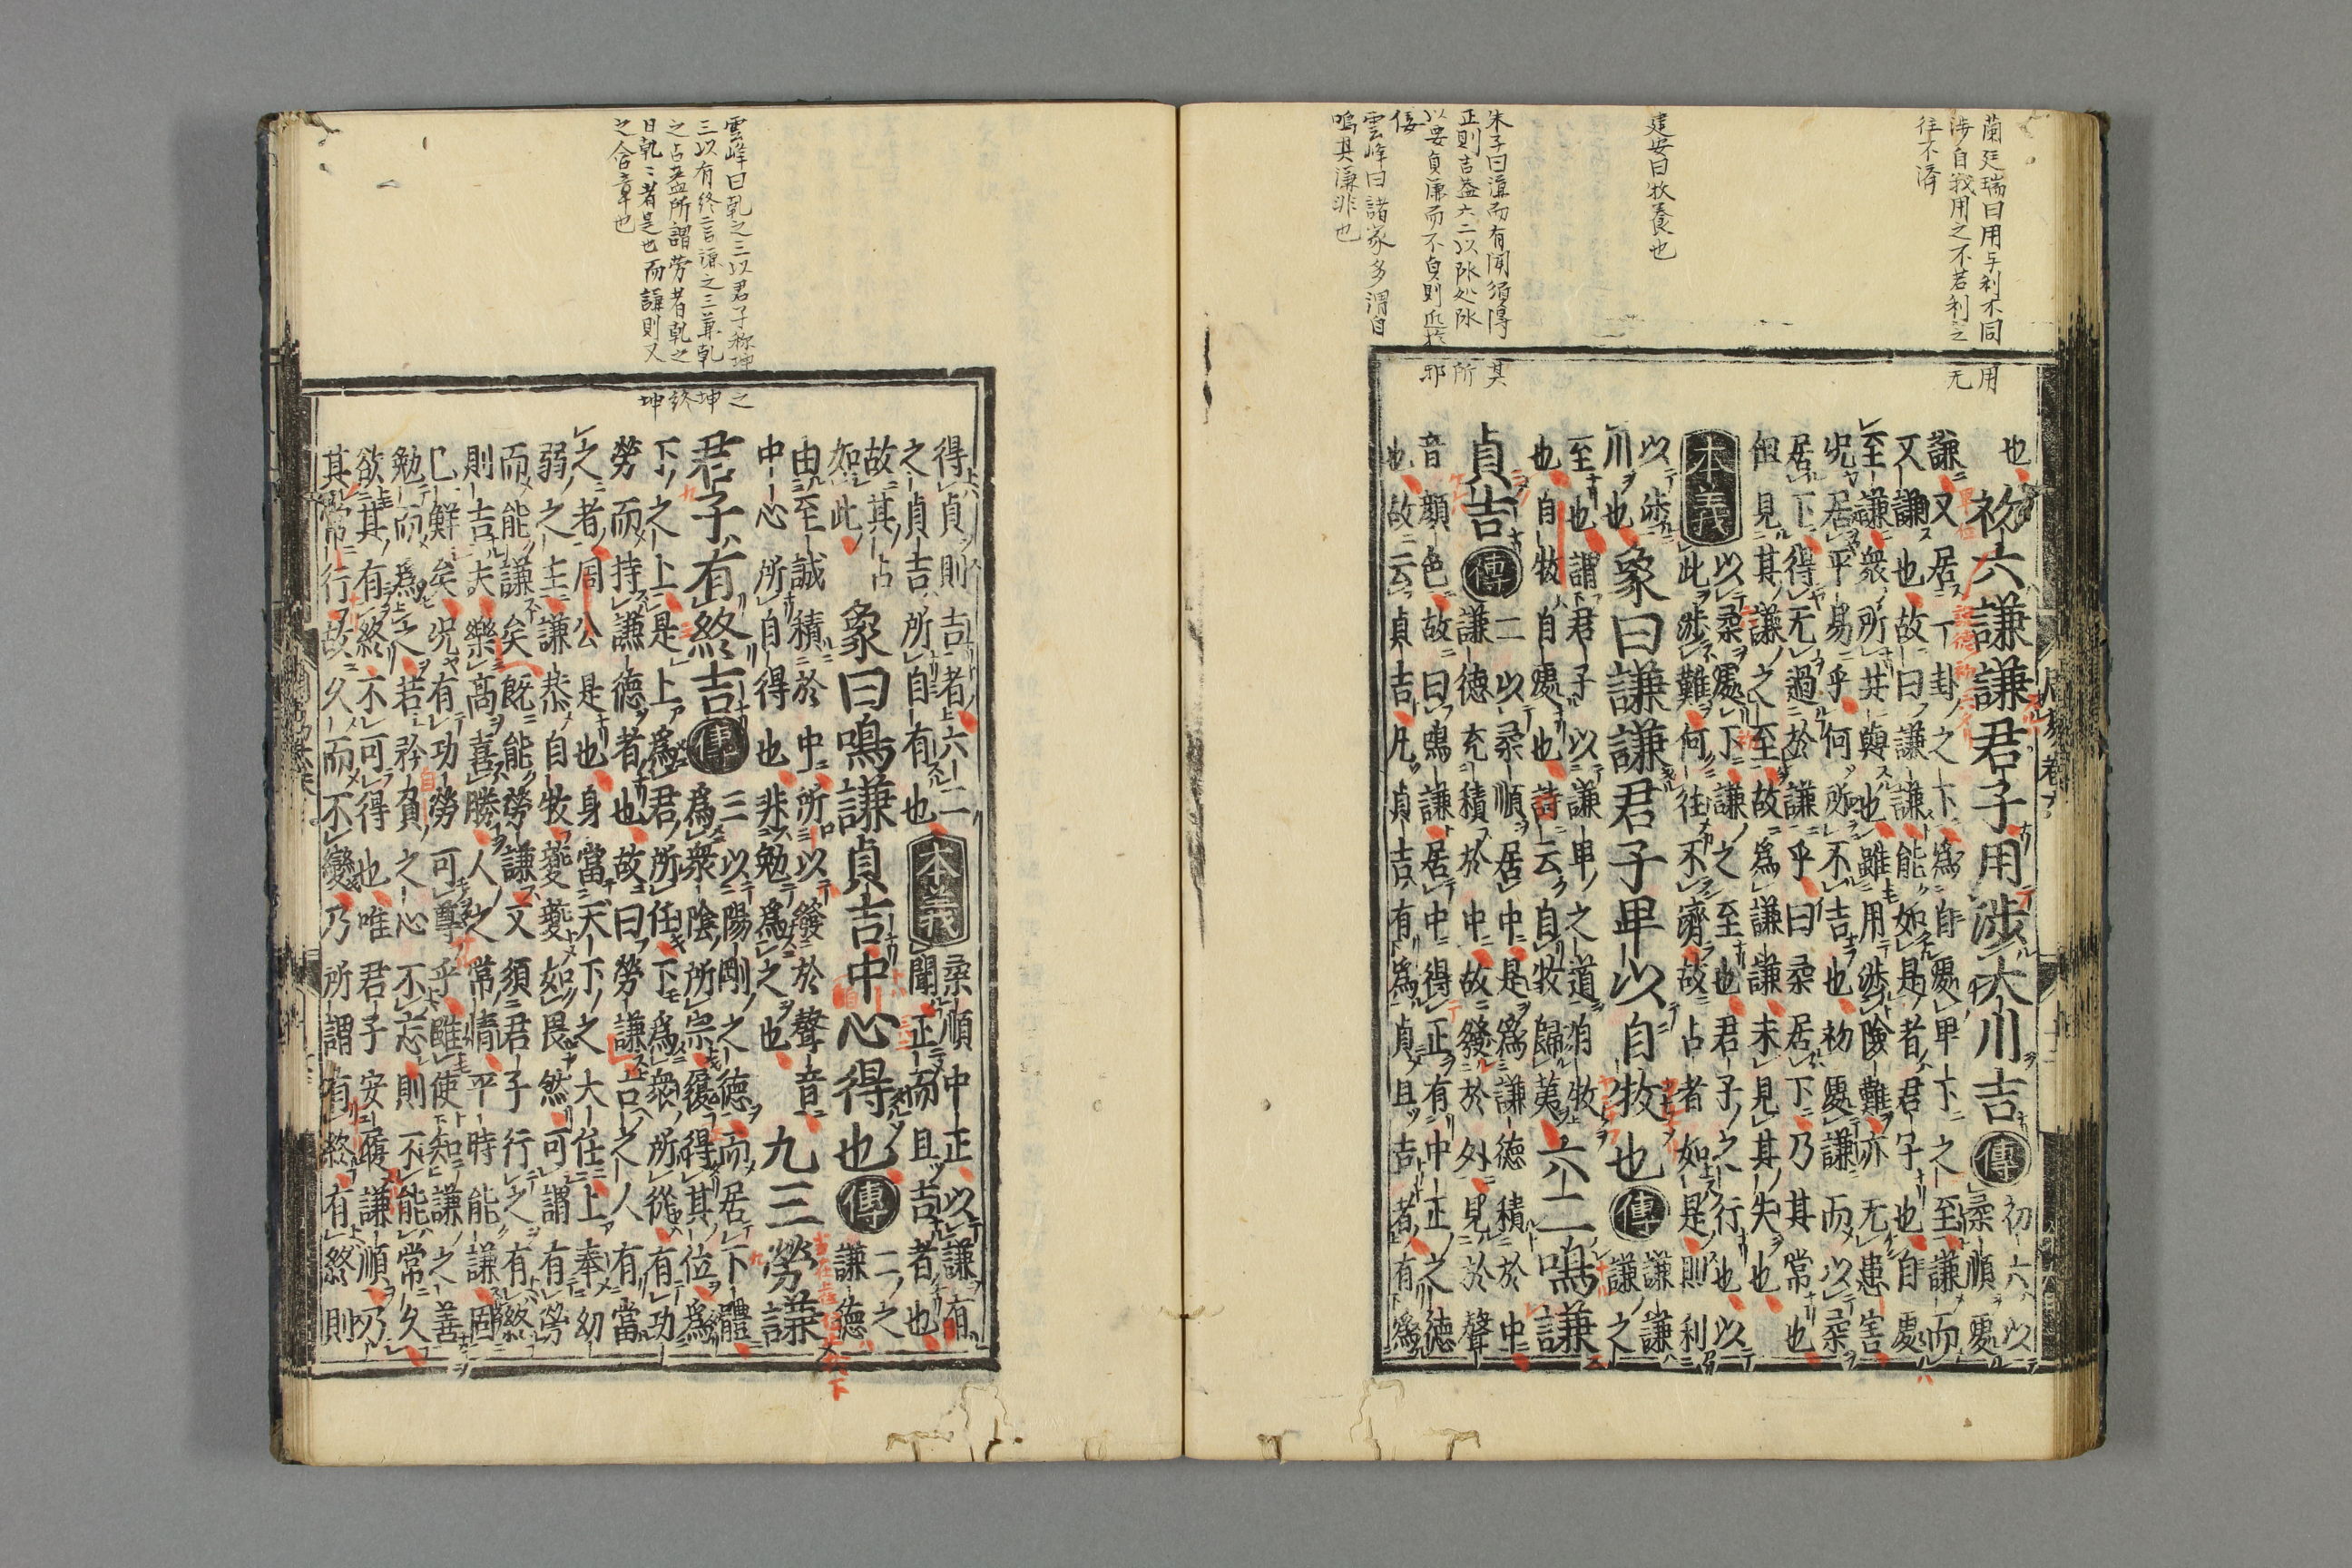 蘭廷瑞曰用与利不同用
涉自我用之不若利之无
往不濟
建安曰牧養也
朱子曰謙而有聞須得其
正則吉蓋六二以陰処陰所
以要貞廉而不貞則近於邪
佞
雲峰曰諸家多謂自
鳴其謙非也
也初六謙謙君子用涉大川吉傳初六以
柔順處
謙又居一卦之下為自處卑下之至謙而
又謙也故曰謙謙能如是者君子也自處
至謙衆所共與也雖用涉險難亦无患害
况居平易乎何所不吉也初處謙而以柔
居下得无過於謙乎曰柔居下乃其常也
但見其謙之至故為謙謙未見其失也
本義以柔處下謙之至也君子之行也以
此涉難何往不濟故占者如是則利
以涉
川也象曰謙謙君子卑以自牧也傳謙謙
謙之
至也謂君子以謙卑之道自牧
也自牧自處也詩云自牧歸荑六二鳴謙
貞吉傳二以柔順居中是為謙德積於中
謙德充積於中故發於外見於聲
音顏色故曰鳴謙居中得正有中正之德
也故云貞吉凡貞吉有為貞且吉者有為
雲峰曰乾之三以君子称坤之
三以有終言謙之三兼乾坤
之占盖所謂労者乾之終
日乾〻者是也而謙則又坤
之含章也
得貞則吉者六二
之貞吉所自有也本義柔順中正以謙有
聞正而且吉者也
故其占
如此象曰鳴謙貞吉中心得也傳二之
謙德
由至誠積於中所以發於聲音
中心所自得也非勉為之也九三勞謙
君子有終吉傳三以陽剛之德而居下體
為衆陰所宗履得其位為
下之上是上為君所任下為衆所從有功
勞而持謙德者也故曰勞謙古之人有當
之者周公是也身當天下之大任上奉幼
弱之主謙恭自牧夔夔如畏然可謂有勞
而能謙矣既能勞謙又須君子行之有終
則吉夫樂高喜勝人之常情平時能謙固
已鮮矣况有功勞可尊乎雖使知謙之善
勉而為之若矜負之心不忘則不能常久
欲其有終不可得也唯君子安履謙順乃
其常行故久而不變乃所謂有終有終則